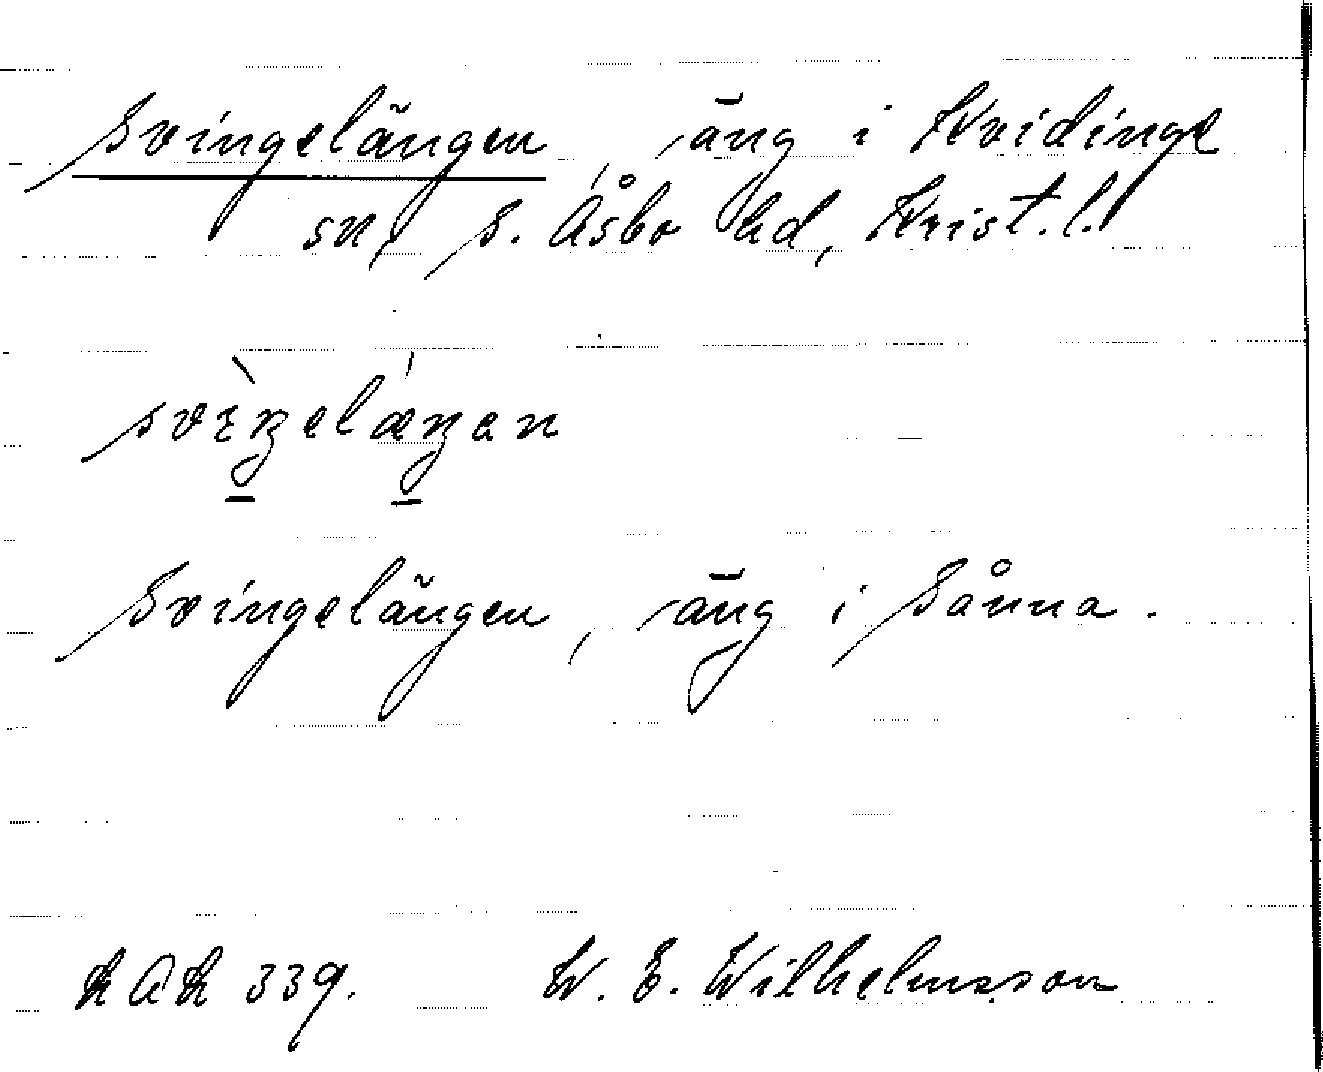 Svingelängen, äng i Kvidinge
sn, S. Åsbo hd, Krist. l.
svìŋelæŋen
Svingelängen, äng i Sånna.
339. W. E. Wilhelmsson